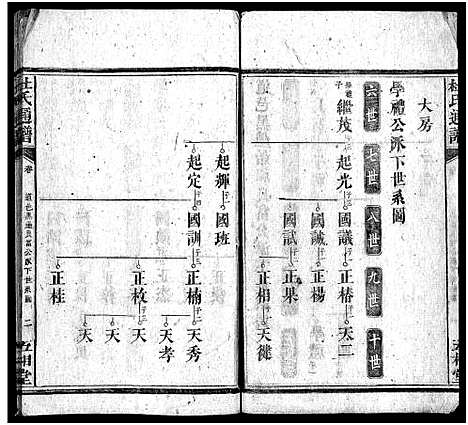 杜氏通譜
大房
學禮公派下世系圖
六世 七世 八世 九世 十世
學禮子 繼茂 起光 國議 正椿 天二
國誠 正楊
國試 正果
正相 天健
起輝 國班
起定 國訓 正楠 天秀
天孝
正枚 天
天
正桂
杜氏通譜
卷
公派下世系圖
二